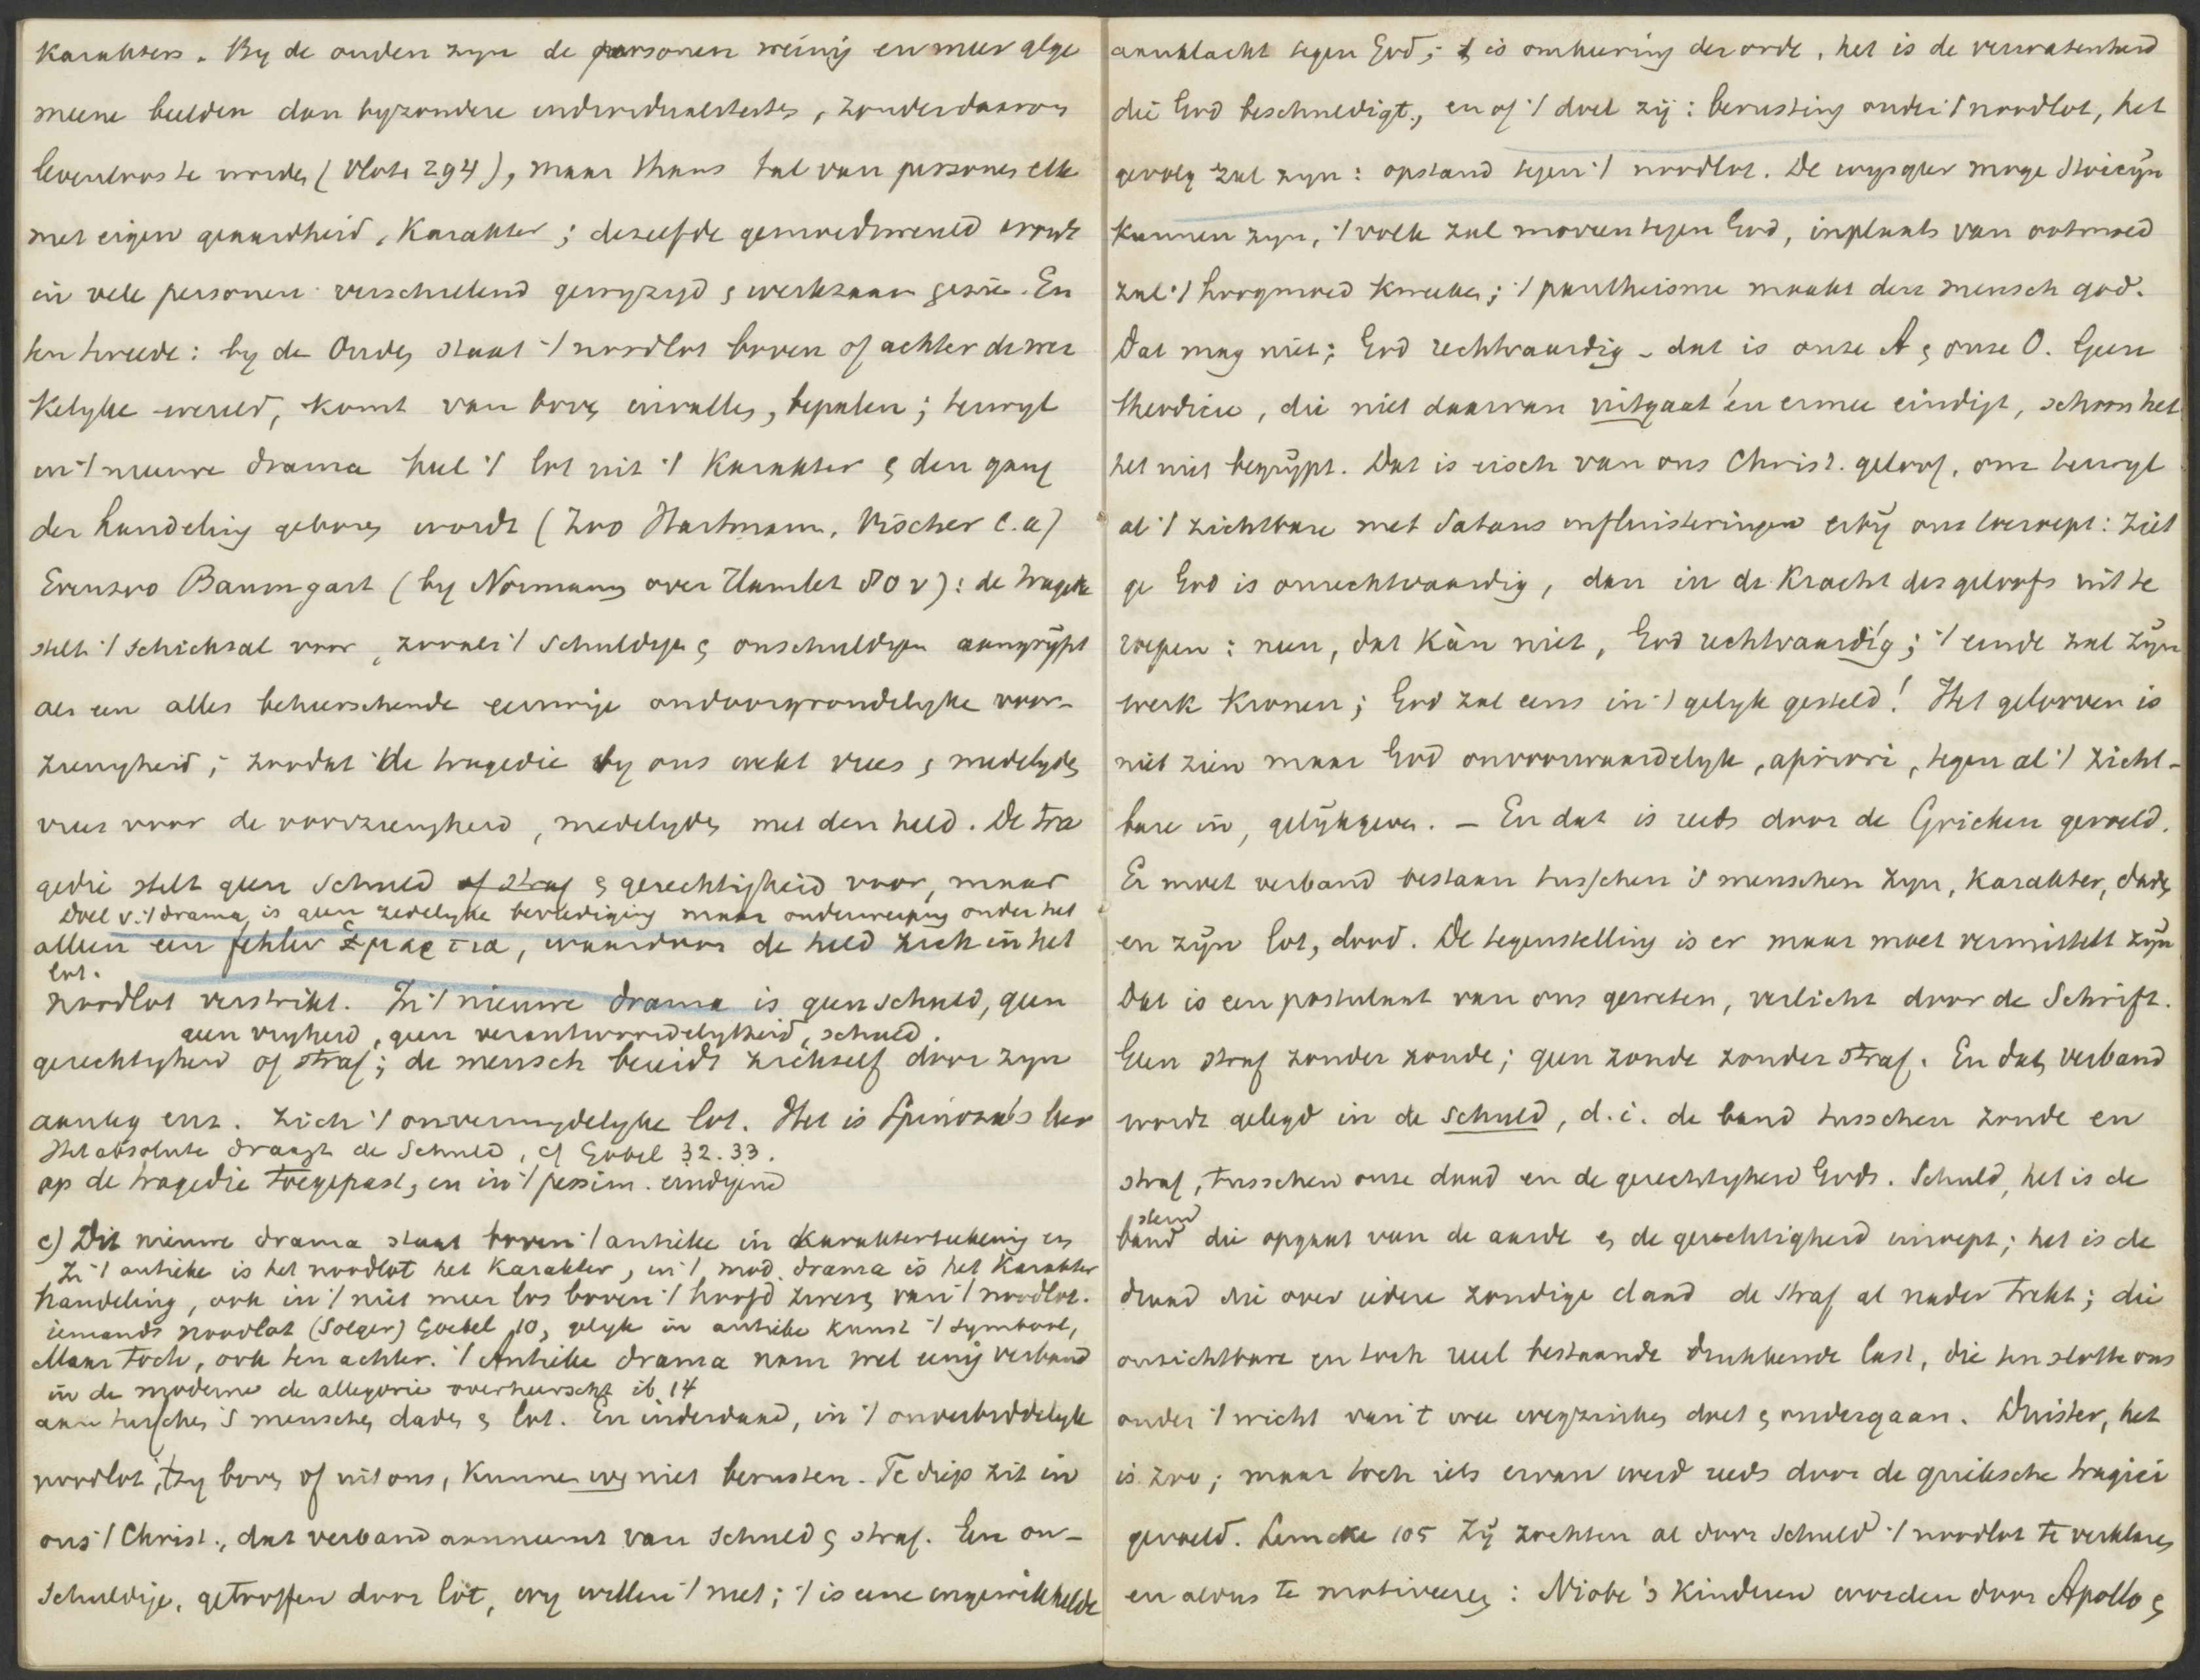 Karakters. By de ouden zyn de personen weinig en meer alge
meene beelden dan byzondere individualiteiten, zonder daarom
levenloos te worden (Vlote 294), maar thans tal van personen elk
met eigen geaardheid, Karakter; dezelfde gemoedswereld wordt
in vele personen verschillend gewyzigd & werkzaam gezie. En
ten tweede: by de Ouden staat 't noodlot boven of achter de wer
kelyke wereld, komt van boven invallen, bepalen; terwyl
in 't nieuwe drama heel 't lot uit 't Karakter & den gang
der handeling geboren wordt (Zoo Hartmann, Vischer e.a)
Evenzoo Baumgart (by Normann over Hamlet 80 v): de tragedie
stelt 't schicksal voor, zooals 't schuldigen & onschuldigen aangrypt
als een alles beheerschende eeuwige ondoorgrondelyke voor-
zienigheid; zoodat de tragedie by ons wekt vrees & medelyden
vrees voor de voorzienigheid, medelyden met den held. De tra
gedie stelt geen schuld of straf & gerechtigheid voor, maar
Doel v. 't drama is geen zedelyke bevrediging maar onderwerping onder het
alleen een fehler ἁμαρτια, waardoor de held zich in het
lot.
noodlot verstrikt. In 't nieuwe drama is geen schuld, geen
geen vryheid, geen verantwoordelykheid, schuld.
gerechtigheid of straf; de mensch bereidt zichself door zyn
aanleg enz. zich 't onvermydelyke lot. Het is Spinoza's leer
Het absolute draagt de Schuld, cf Gobel 32.33.
op de tragedie toegepast, en in 't pessim. eindigend
c) Dit nieuwe drama staat boven 't antieke in Karaktertekening en
In 't antieke is het noodlot het Karakter, in 't mod. drama is het Karakter
handeling, ook in 't niet meer los boven 't hoofd zweven van 't noodlot.
iemands noodlot (Solger) Goebel 10, gelyk in antieke kunst 't symbool,
Maar toch, ook ten achter. 't Antieke drama nam wel eenig verband
in de moderne de allegorie overheerscht ib 14
aan tusschen 's menschen daden & lot. En inderdaad, in 't onverbiddelyk
noodlot, 'tzy boven of uit ons, kunnen wy niet berusten. Te diep zit in
ons 't Christ., dat verband aanneemt van schuld & straf. Een on-
schuldige, getroffen door lot, wy willen 't niet; 't is eene ingewikkelde
aanklacht tegen God; 't is omkeering der orde, het is de verwatenheid
die God beschuldigt, en of 't doel zij: berusting onder 't noodlot, het
gevolg zal zyn: opstand tegen 't noodlot. De wysgeer moge Stoicyn
kunnen zyn, 't volk zal morren tegen God, inplaats van ootmoed
zal 't hoogmoed kweeken; 't pantheisme maakt den mensch god.
Dat mag niet; God rechtvaardig - dat is onze A & onze O. Geen
theodicee, die niet daarvan uitgaat én ermee eindigt, schoon het
het niet begrypt. Dat is eisch van ons Christ. geloof, om terwyl
al 't zichtbare met Satans influisteringen erby ons toeroept: ziet
ge God is onrechtvaardig, dan in de kracht des geloofs uit te
roepen: neen, dat kàn niet, God rechtvaardíg; 't einde zal zyn
werk kronen; God zal eens in 't gelyk gesteld! Het gelooven is
niet zien maar God onvoorwaardelyk, apriori, tegen al 't zicht-
bare in, gelykgeven. - En dat is reeds door de Grieken gevoeld.
Er moet verband bestaan tusschen 's menschen zyn, Karakter, daden
en zyn lot, dood. De tegenstelling is er maar moet vermittelt zyn
Dat is een postulaat van ons geweten, verlicht door de Schrift.
Geen straf zonder zonde; geen zonde zonder straf. En dat verband
wordt gelegd in de schuld, d.i. de band tusschen zonde en
straf, tusschen onze daad en de gerechtigheid Gods. Schuld, het is de
stem
band die opgaat van de aarde & de gerechtigheid inroept; het is de
draad die over iedere zondige daad de straf al nader trekt; die
onzichtbare en toch reel bestaande drukkende last, die ten slotte ons
onder 't wicht van 't wee wegzinken doet & ondergaan. Duister, het
is zoo; maar toch iets ervan werd reeds door de grieksche tragici
gevoeld. Lemcke 105 Zy zochten al door schuld 't noodlot te verklaren
en alvus te motiveeren: Niobe's kinderen worden door Apollo &